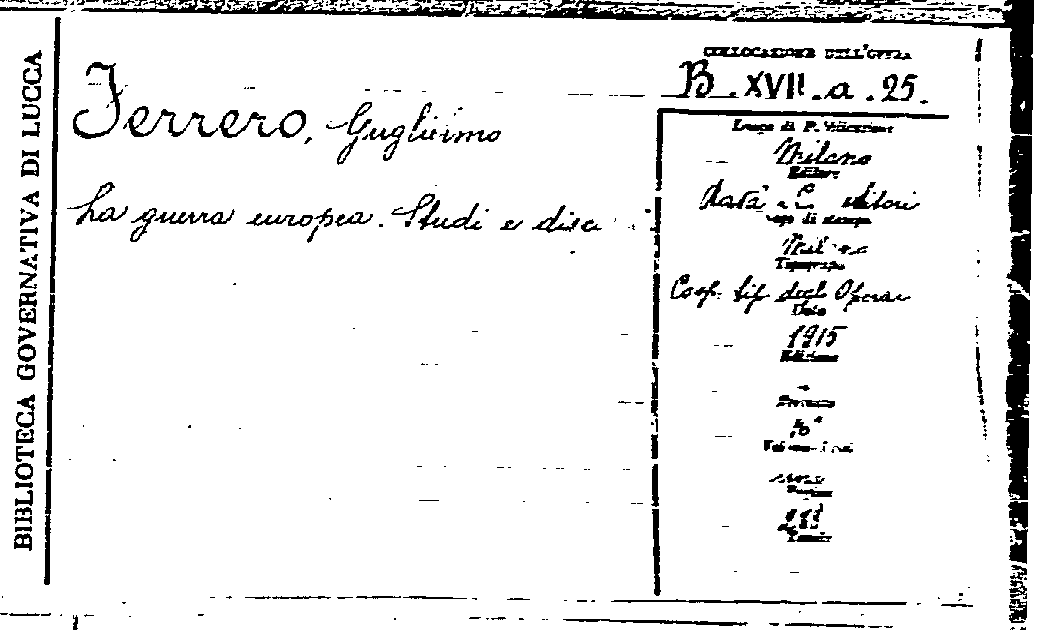 BIBLIOTECA GOVERNATIVA DI LUCCA
Ferrero, Guglielmo
La guerra europea. Studi e disc
COLLOCAZIONE DELL'OPERA
B. XVII. a. 25.
Luogo di Pubblicazione
Milano
Editore
Ravà e C. editori
Luogo di stampa
Milano
Tipografia
Coop. tip. degli Operai
Data
1915
Edizione
Formato
Volume
uno
Pagine